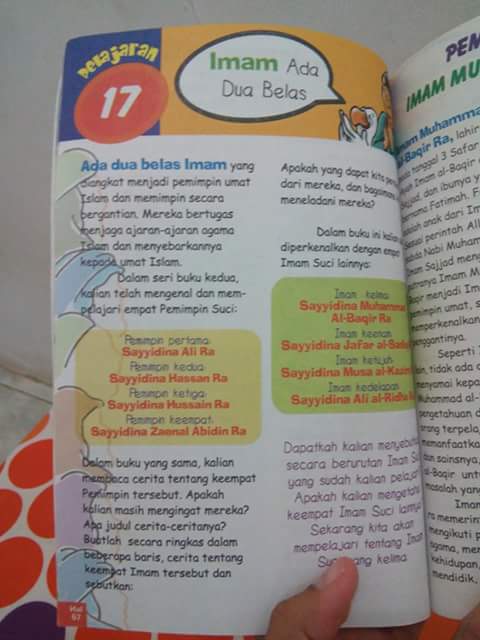 Pelajaran
17
Imam Ada
Dua Belas
Ada dua belas Imam yang
diangkat menjadi pemimpin umat
Islam dan memimpin secara
bergantian. Mereka bertugas
menjaga ajaran-ajaran agama
Islam dan menyebarkannya
kepada umat Islam.
Dalam seri buku kedua,
kalian telah mengenal dan mem-
pelajari empat Pemimpin Suci:
Pemimpin pertama:
Sayyidina Ali Ra
Pemimpin kedua:
Sayyidina Hassan Ra
Pemimpin ketiga:
Sayyidina Hussain Ra
Pemimpin keempat:
Sayyidina Zaenal Abidin Ra
Dalam buku yang sama, kalian
membaca cerita tentang keempat
Pemimpin tersebut. Apakah
kalian masih mengingat mereka?
Apa judul cerita-ceritanya?
Buatlah secara ringkas dalam
beberapa baris, cerita tentang
keempat Imam tersebut dan
sebutkan:
Hal
57
Apakah yang dapat kita
dari mereka, dan bagaimana
meneladani mereka?
Dalam buku ini kalian
diperkenalkan dengan empat
Imam Suci lainnya:
Imam kelima:
Sayyidina Muhammad
Al-Baqir Ra
Imam keenam:
Sayyidina Ja'far al-Sadiq
Imam ketujuh:
Sayyidina Musa al-Kazim
Imam kedelapan:
Sayyidina Ali al-Ridha
Dapatkah kalian menyebutkan
secara berurutan Imam Suci
yang sudah kalian pelajari
Apakah kalian mengetahui
keempat Imam Suci lainnya
Sekarang kita akan
mempelajari tentang Imam
Suci yang kelima
IMAM
Imam Muhammad
al-Baqir Ra, lahir
tanggal 3 Safar
Imam al-Baqir
dan ibunya
Fatimah.
anak dari Imam
perintah
Nabi
Sajjad
Imam
menjadi
umat,
memperkenalkan
penggantinya.
Seperti
tidak ada
menyamai
Muhammad al-
pengetahuan
orang
memanfaatkan
sainsnya,
al-Baqir
masalah yang
Imam
mengikuti
agama,
kehidupan,
mendidik,